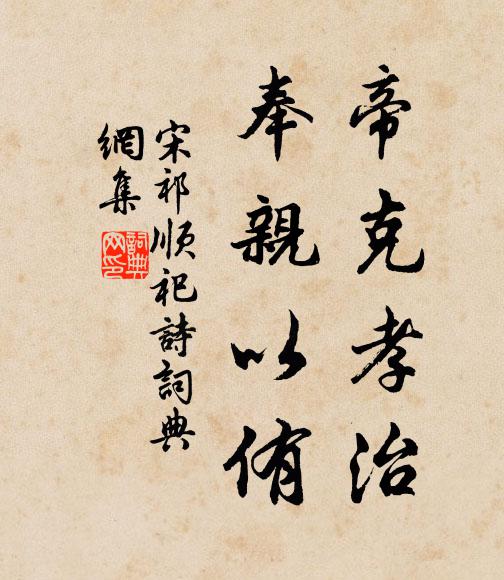 帝克孝治
奉親以侑
宋祁順祀詩詞典
網集
詞典網印